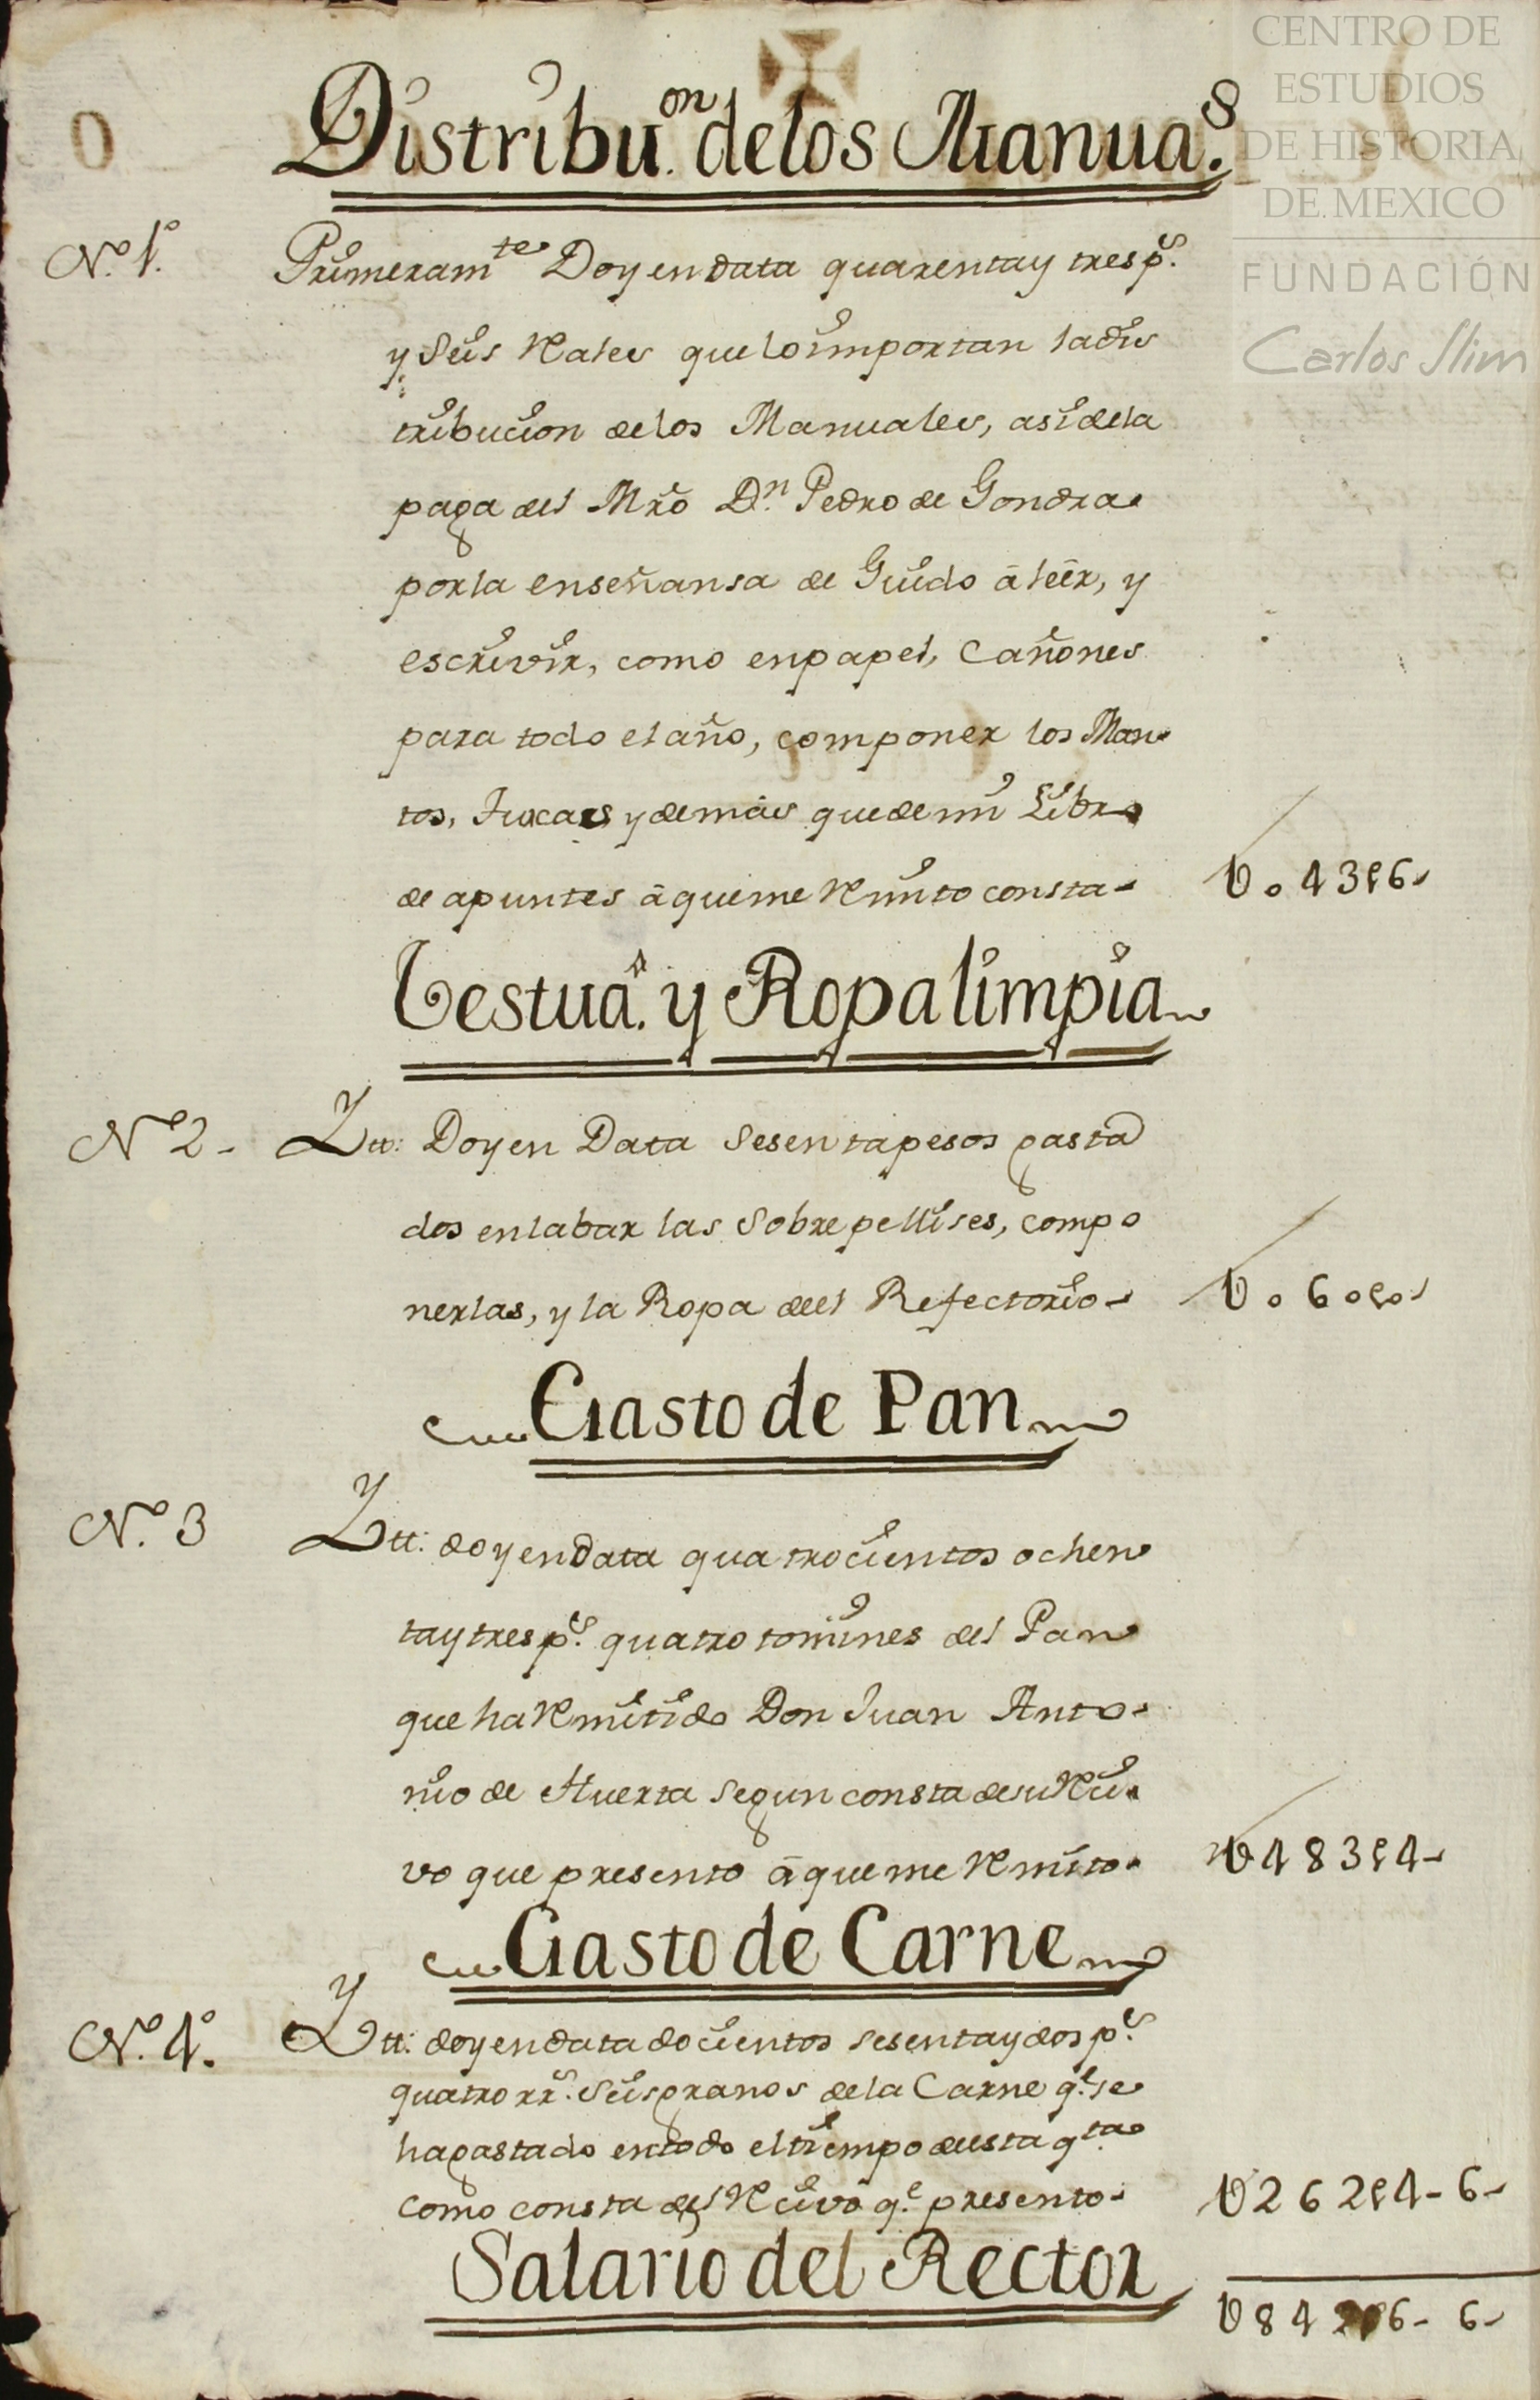 CENTRO DE
ESTUDIOS
DE HISTORIA
DE MEXICO
FUNDACIÓN
Carlos Slim
0
Distribu.on de los Manua.s
N.o 1.o
Primeram.te Doy en data quarenta y tres p.s
y seis Rales que lo importan la dis
tribucion de los Manuales, asi de la
paga del Mro D.n Pedro de Gondra
por la enseñansa de Guido á leér, y
escrivir, como en papel, Cañones
para todo el año, componer los Man
tos, Turcas y demás que de mi Libro
de apuntes á que me Remito consta-
U.043p6-
Vestua.o y Ropa limpia
N.o 2-
Ytt: Doy en Data Sesenta pesos gasta
dos en labar las Sobrepellises, compo
nerlas, y la Ropa del Refectorio-
U.060p0-
Gasto de Pan
N.o 3
Ytt: doy en data quatrocientos ochen
ta y tres p.s quatro tomines del Pan
que ha Remitido Don Juan Anto-
nio de Huerta segun consta de su Reci
vo que presento á que me Remito-
U483p4-
Gasto de Carne
N.o 4.o
Ytt: doy en data docientos sesenta y dos p.s
quatro rr.s seis granos de la Carne q.e se
ha gastado en todo el tiempo de esta q.ta
como consta del Recivo q.e presento-
U262p4-6-
Salario del Rector
U84 p6-6-